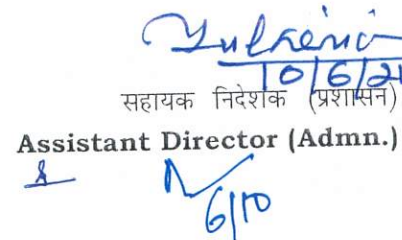 10/6/21
सहायक निदेशक (प्रशासन)
Assistant Director (Admn.)
6/10